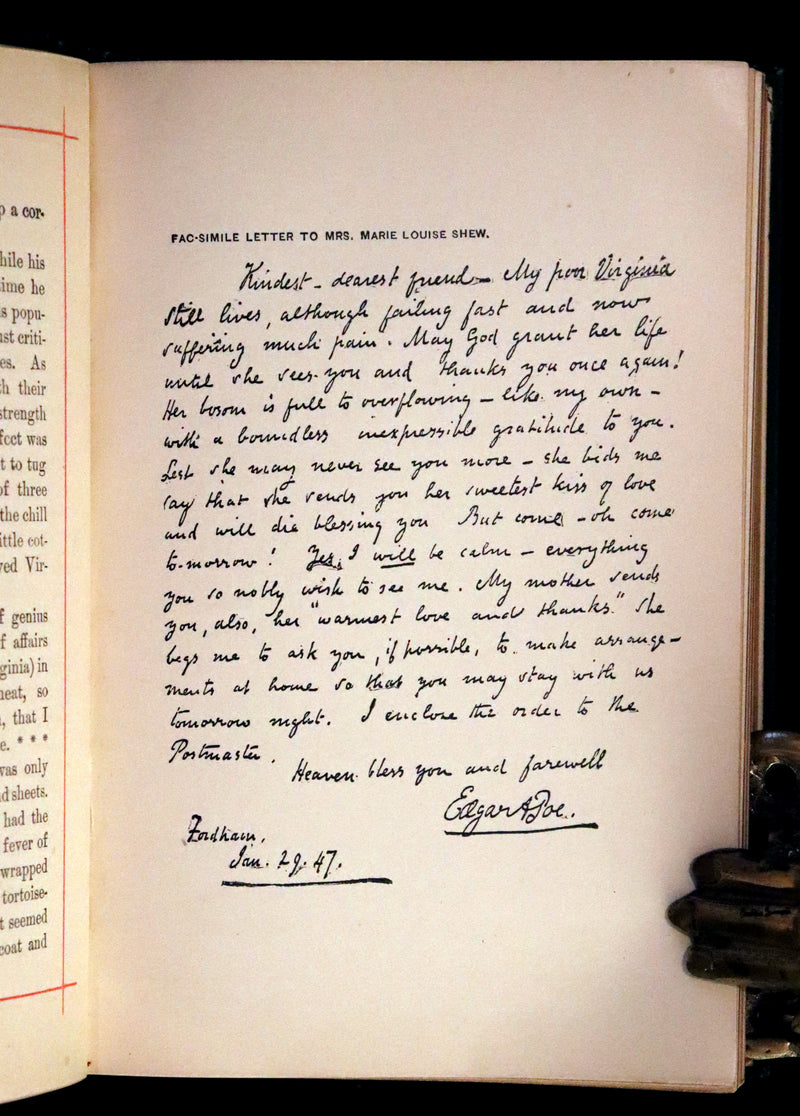 p a cor-
hile his
time he
s popu-
ust criti-
es. As
th their
strength
feet was
t to tug
of three
the chill
ittle cot-
ved Vir-
f genius
f affairs
ginia) in
neat, so
, that I
e. * * *
was only
d sheets.
had the
fever of
wrapped
tortoise-
t seemed
coat and
FAC-SIMILE LETTER TO MRS. MARIE LOUISE SHEW.
Kindest – dearest friend – My poor Virginia
still lives, although failing fast and now
suffering much pain. May God grant her life
until she sees you and thanks you once again!
Her bosom is full to overflowing – like my own –
with a boundless inexpressible gratitude to you.
Lest she may never see you more – she bids me
say that she sends you her sweetest kiss of love
and will die blessing you But come – oh come
to-morrow! Yes, I will be calm – everything
you so nobly wish to see me. My mother sends
you, also, her "warmest love and thanks." She
begs me to ask you, if possible, to make arrange-
ments at home so that you may stay with us
tomorrow night. I enclose the order to the
Postmaster.
Heaven bless you and farewell
Edgar A Poe.
Fordham,
Jan. 29. 47.